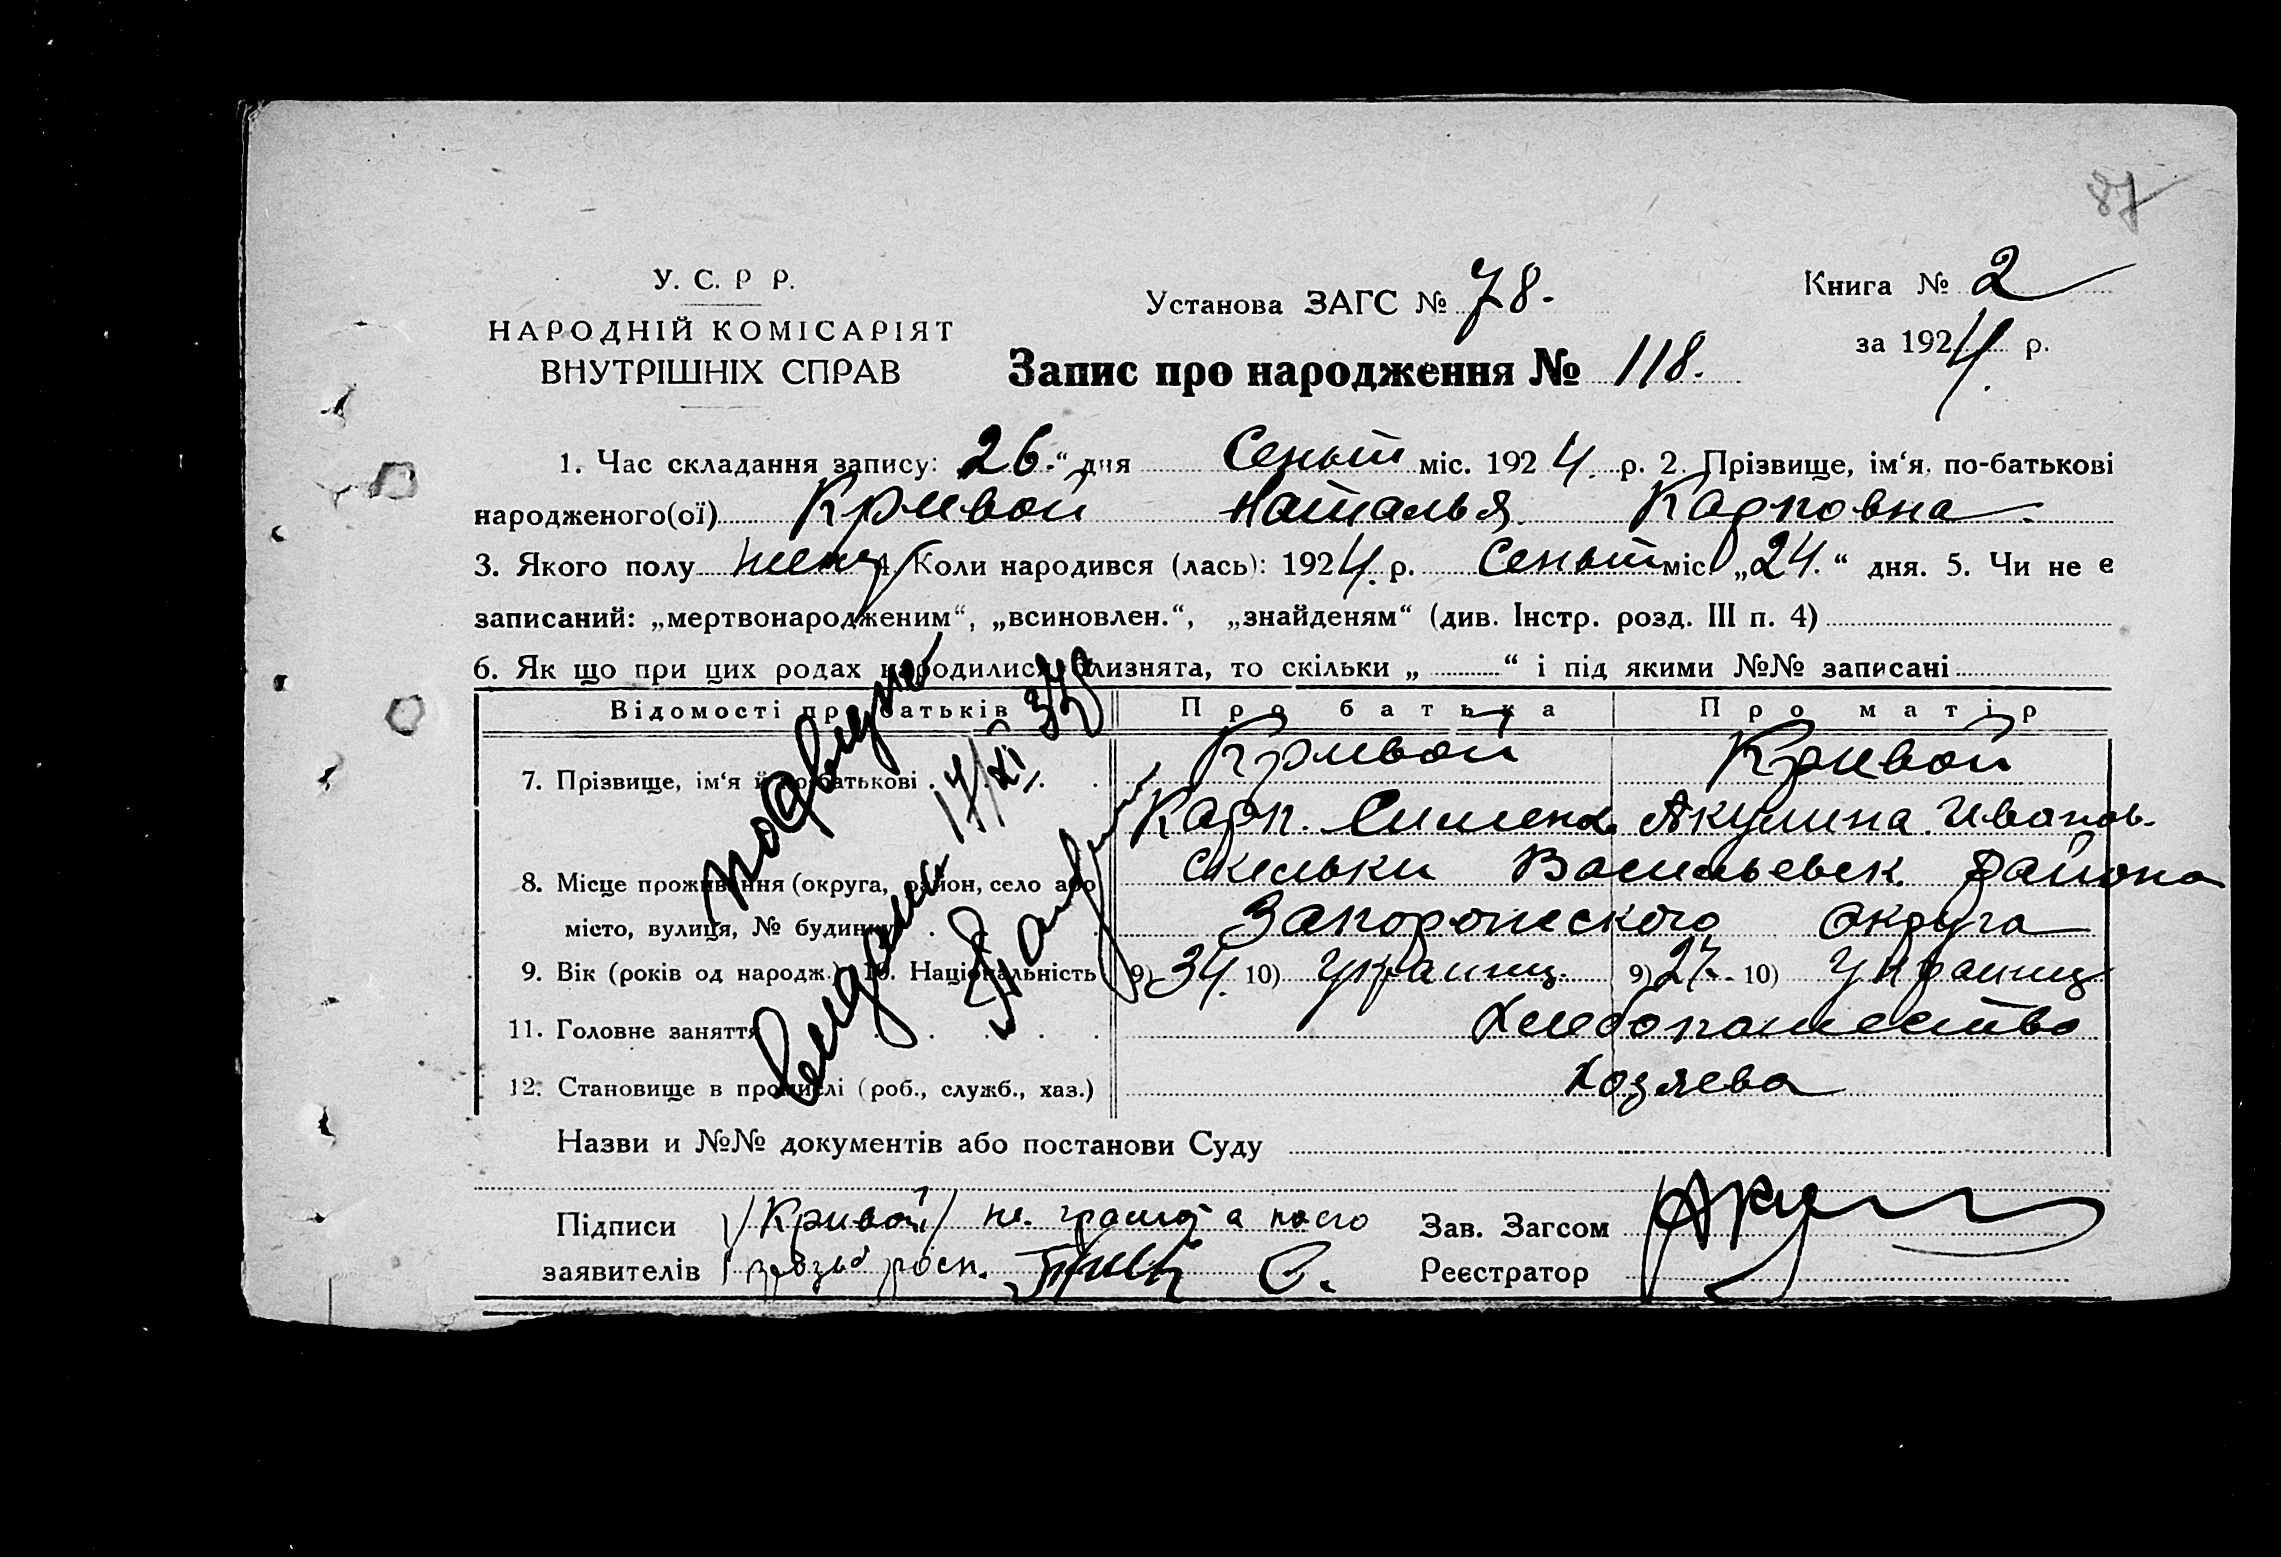 87
У. С. Р Р.
НАРОДНІЙ КОМІСАРІЯТ
ВНУТРІШНІХ СПРАВ
Установа ЗАГС № 78.
Книга № 2
за 1924 р.
Запис про народження № 118.
1. Час складання запису: 26. “ дня Сеньт міс. 1924. р. 2. Прізвище, ім‘я, по-батькові
народженого(ої) Кривой Наталья Карповна
3. Якого полу женс 4. Коли народився (лась): 1924. р. Сеньт міс. „24.“ дня. 5. Чи не є
записаний: „мертвонародженим“, „всиновлен.“, „знайденям“ (див. Інстр. розд. III п. 4)
6. Як що при цих родах народилися близнята, то скільки „ “ і під якими №№ записані
Відомості про батьків Про батька Про матір
7. Прізвище, ім‘я й по-батькові Кривой Кривой
Карп. Симено. Акулина Иванов.
8. Місце проживання (округа, район, село або Скельки Васильевск. района
місто, вулиця, № будинку Запорожского округа
9. Вік (років од народж.) 10. Національність 9) 34. 10) Украинц. 9) 27. 10) Украинц
11. Головне заняття Хлебопашество
12. Становище в промислі (роб., служб., хаз.) Хозяева
Назви и №№ документів або постанови Суду
Підписи /Кривой/ не грамот а по его
заявителів росп. С.
Зав. Загсом
Реєстратор